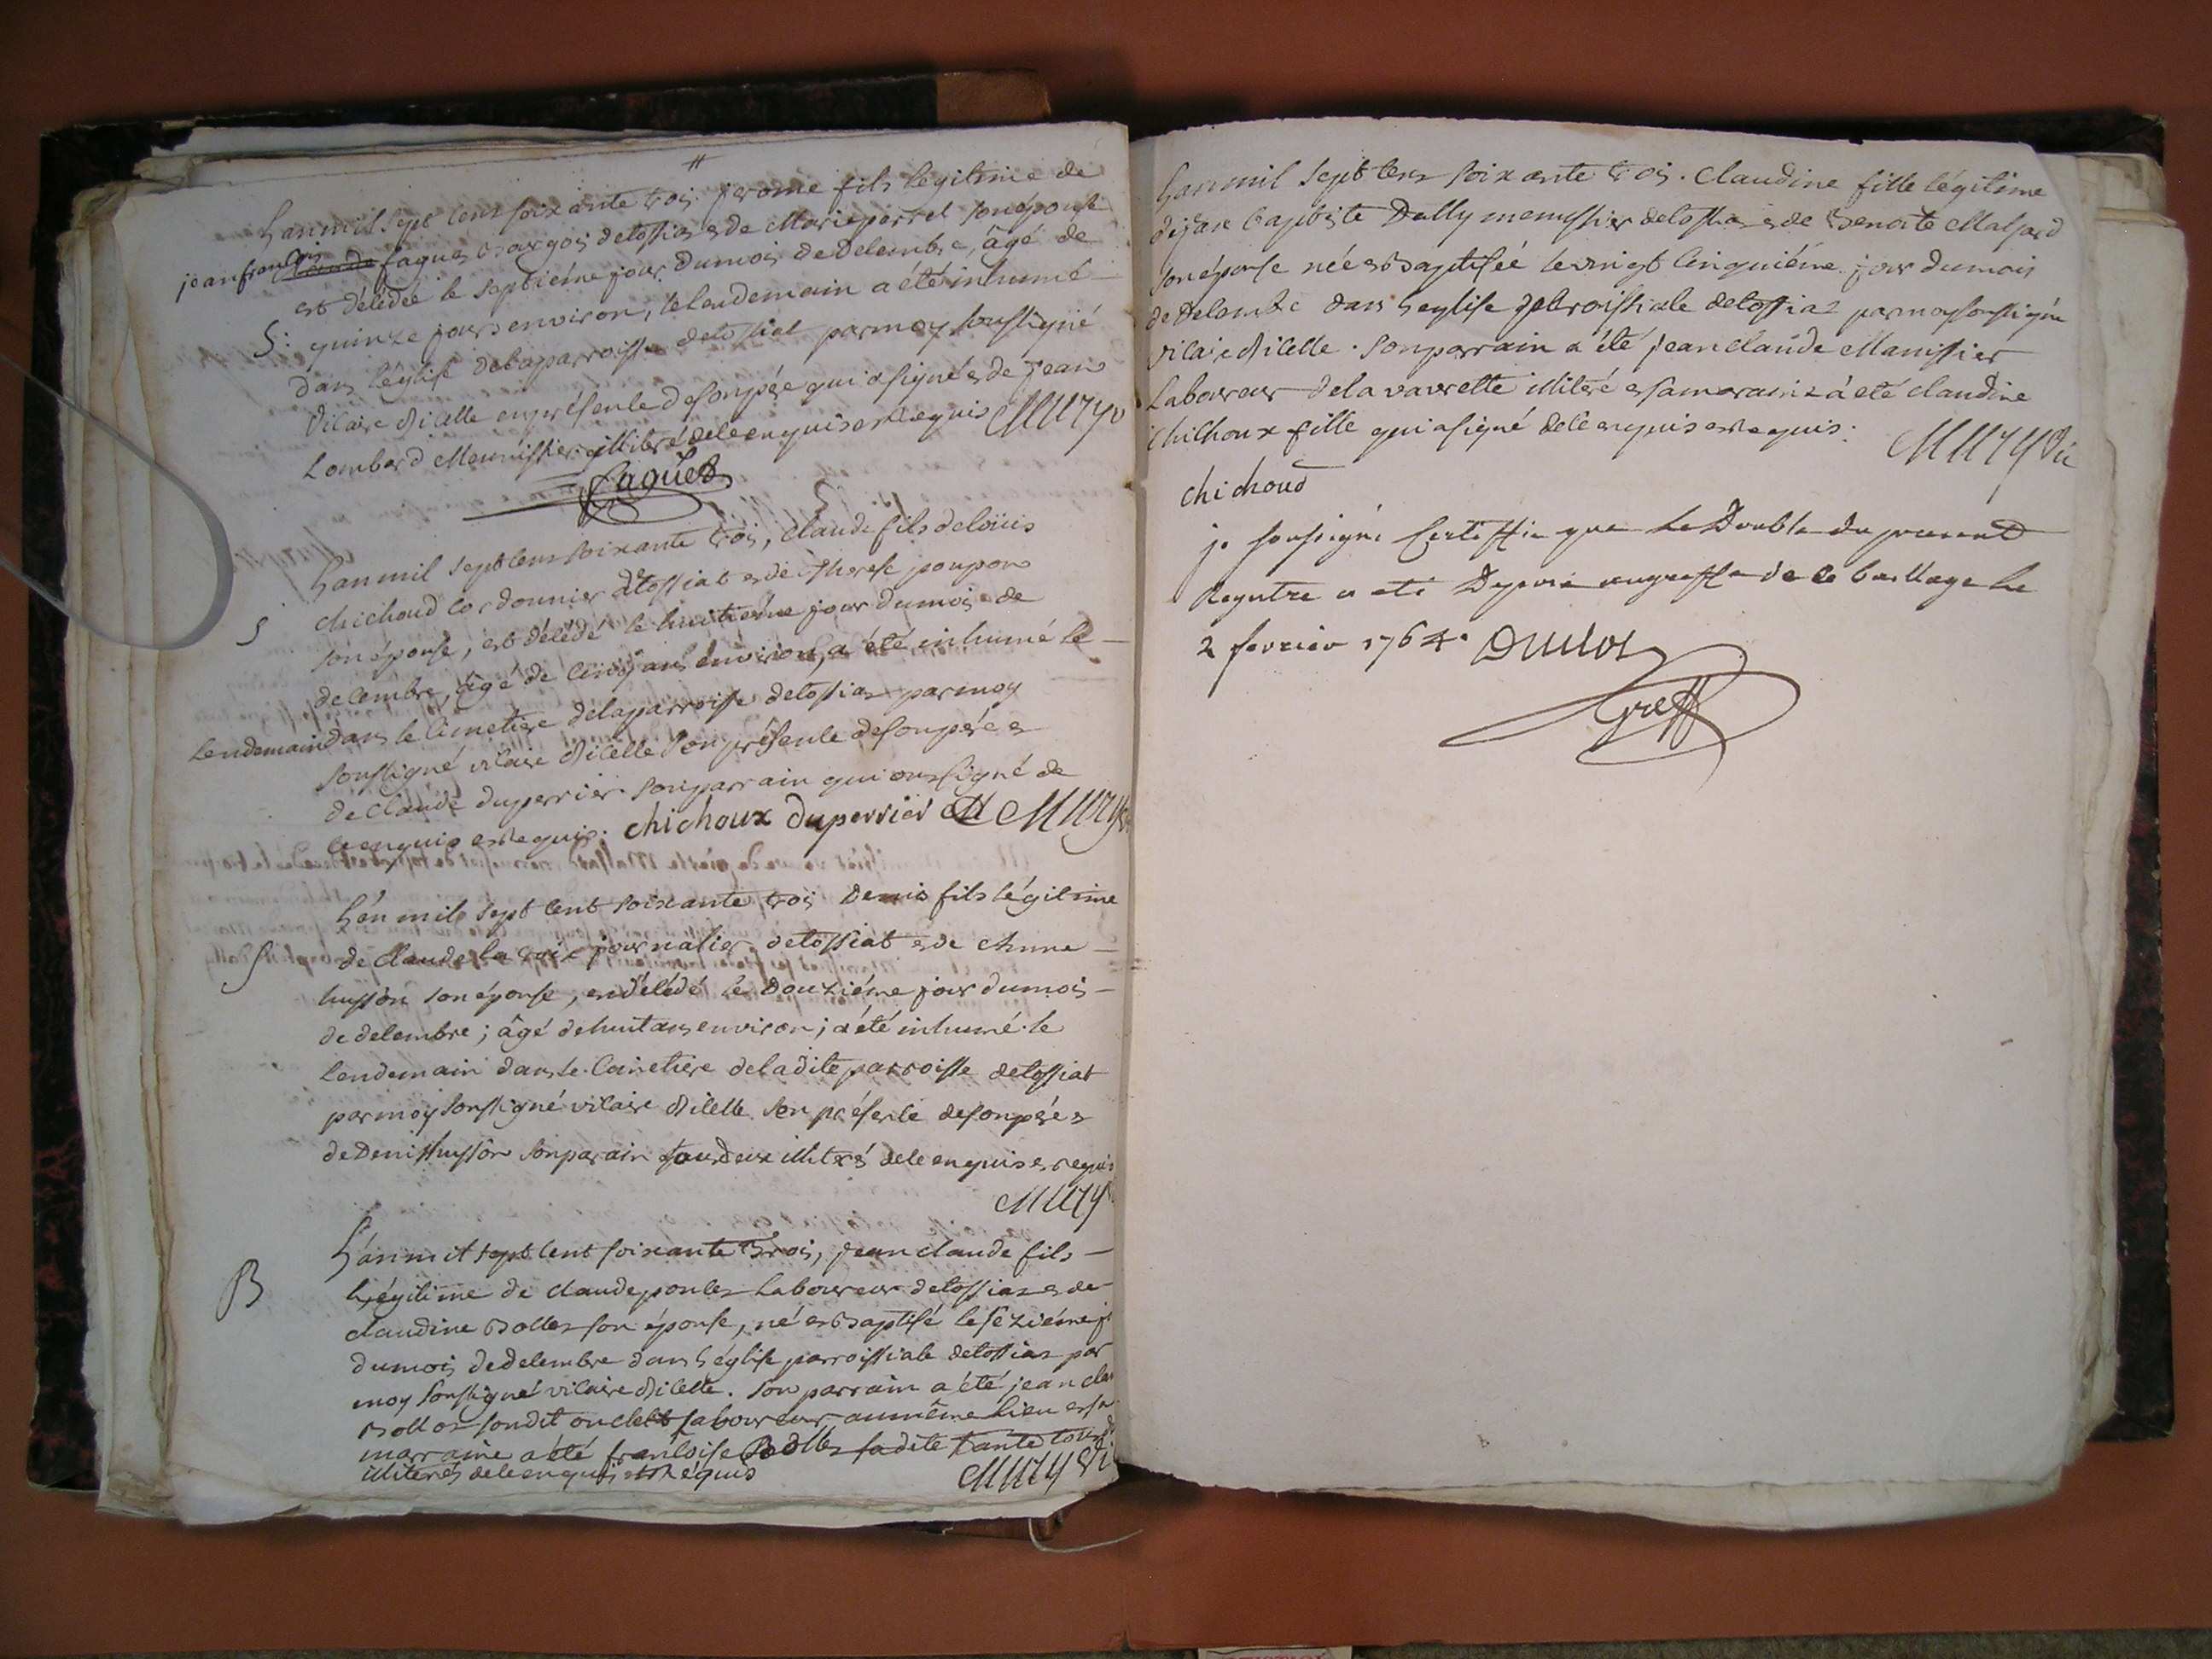 L'an mil sept cent soixante trois. jerome fils légitime de
jean françois claude faguet bourgois de tossiat et de Marie perret son épouse
est décédée le septiéme jour du mois de decembre, âgé de
S: quinze jours environ, le lendemain a été inhumé
dans l'église de la parroisse de tossiat par moy soussigné
vicaire d'icelle en présence de son père qui a signé et de jean
Lombard Menuissier illitré de ce enquis et requis MUry v
faguet
L'an mil sept cent soixante trois, claude fils de loüis
chichoud cordonnier de tossiat et de therese poupon
S son épouse, est décédé le huitieme jour du mois de
decembre, âgé de cinq ans environ, a été inhumé le
lendemain dans le cimetiere de la parroisse de tossiat par moy
soussigné vicaire d'icelle en présence de son pére et
de claude duperrier son parrain qui ont signé de
ce enquis et requis. chichoux duperrier MUry v
L'an mil sept cent soixante trois Denis fils légitime
S de claude la croix journalier de tossiat et de Anne
husson son épouse, est décédé le Douziéme jour du mois
de decembre; âgé de huit ans environ; a été inhumé le
lendemain dans le Cimetiere de la dite parroisse de tossiat
par moy soussigné vicaire d'icelle en présence de son pére et
de Denis husson son parain tous deux illiterés de ce enquis et requis
MUry v
L'an mil sept cent soixante trois, jean claude fils
B légitime de claude poncet laboureur de tossiat et de
claudine bollet son épouse, né et baptisé le séziéme j
du mois de decembre dans l'église parroissiale de tossiat par
moy soussigné vicaire d'icelle. son parrain a été jean clau
Bollet son dit oncle laboureur au même lieu et sa
marraine a été françoise Bollet sa dite tante tous d
illiterés de ce enquis et requis MUry vi
L'an mil sept cent soixante trois. Claudine fille légitime
de jean baptiste Dally menuissier de tossiat et de Benoite Malfard
son épouse née et baptisée le vingt cinquiéme jour du mois
de Decembre dans l'eglise parroissiale de tossiat par moy soussigné
vicaire d'icelle. son parrain a été jean claude Manissier
laboureur de la vavrette illiteré et sa maraine a été claudine
chichoux fille qui a signé de ce enquis et requis: MUry vic
chichoud
je soussigné Certiffie que le Double du present
Registre a été Deposé au greffe de ce bailliage le
2 fevrier 1764. Duclos
Greff